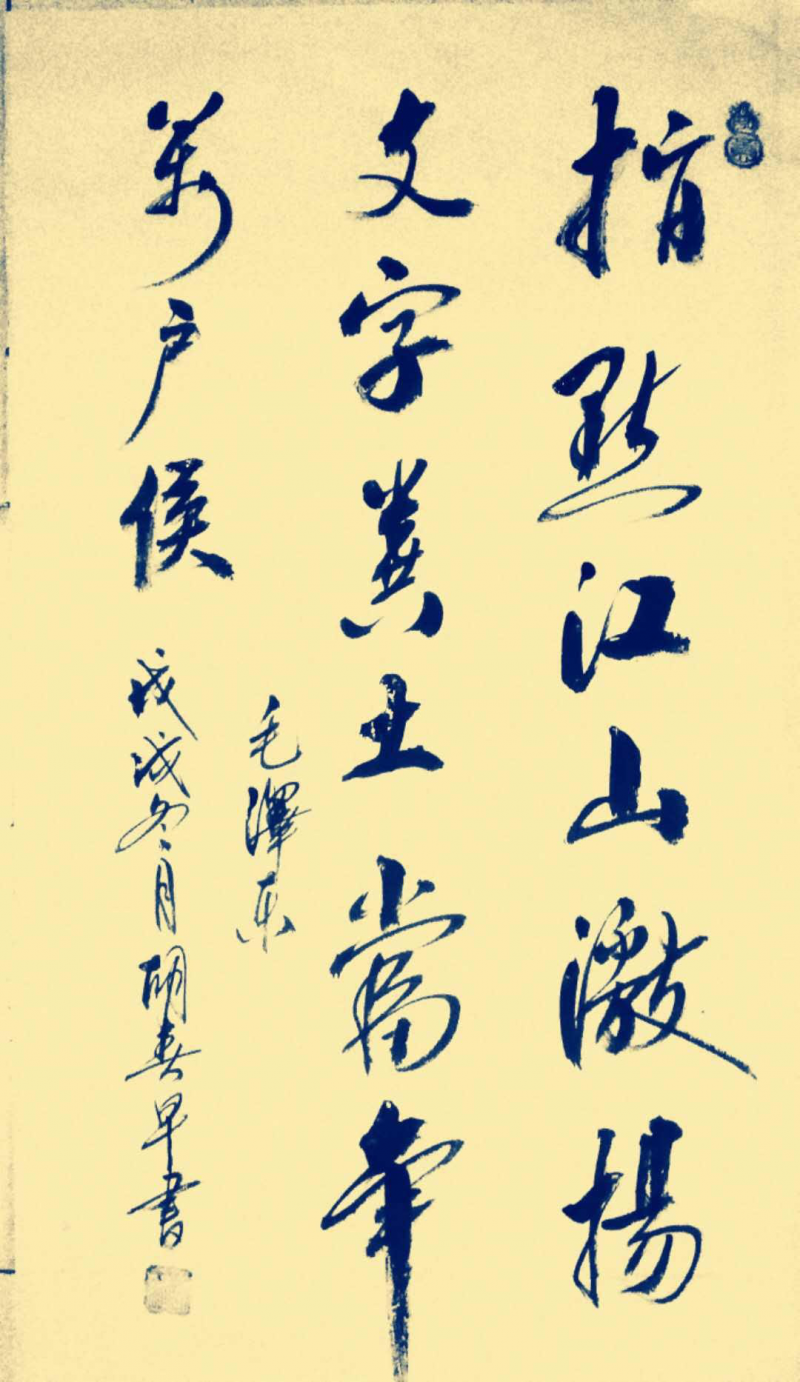 指點江山激揚
文字糞土當年
萬戶侯
毛澤东
戊戌冬月胡春早書